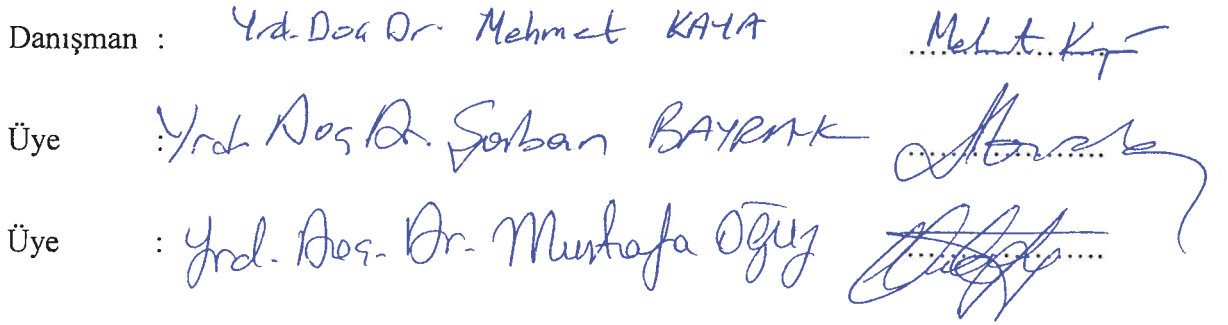 Danışman : Yrd. Doç Dr. Mehmet KAYA Mehmet Kaya
Üye : Yrd. Doç Dr. Şaban BAYRAK
Üye : Yrd. Doç. Dr. Mustafa OĞUZ